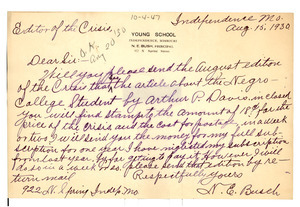 10-4-47
Independence Mo.
Editor of the Crisis,
YOUNG SCHOOL
Aug. 15, 1930
INDEPENDENCE, MISSOURI
N. E. BUSH, PRINCIPAL
Dear Sir:-
Will you please send the August edition
of the Crisis that has the article about the Negro-
College Student by Arthur P. Davis, inclosed
you will find stamps to the amount of 18¢ for the
price of the Crisis and the cost of postage, in a week
or two I will send you the money for my full sub-
scription for one year. I have neglected my subscription
for the last year, by far going to pay it. However, I will
do so in a week or so. Please send that edition by re-
turn mail.
Respectfully Yours
922 N. Spring Indep. Mo
N. E. Busch